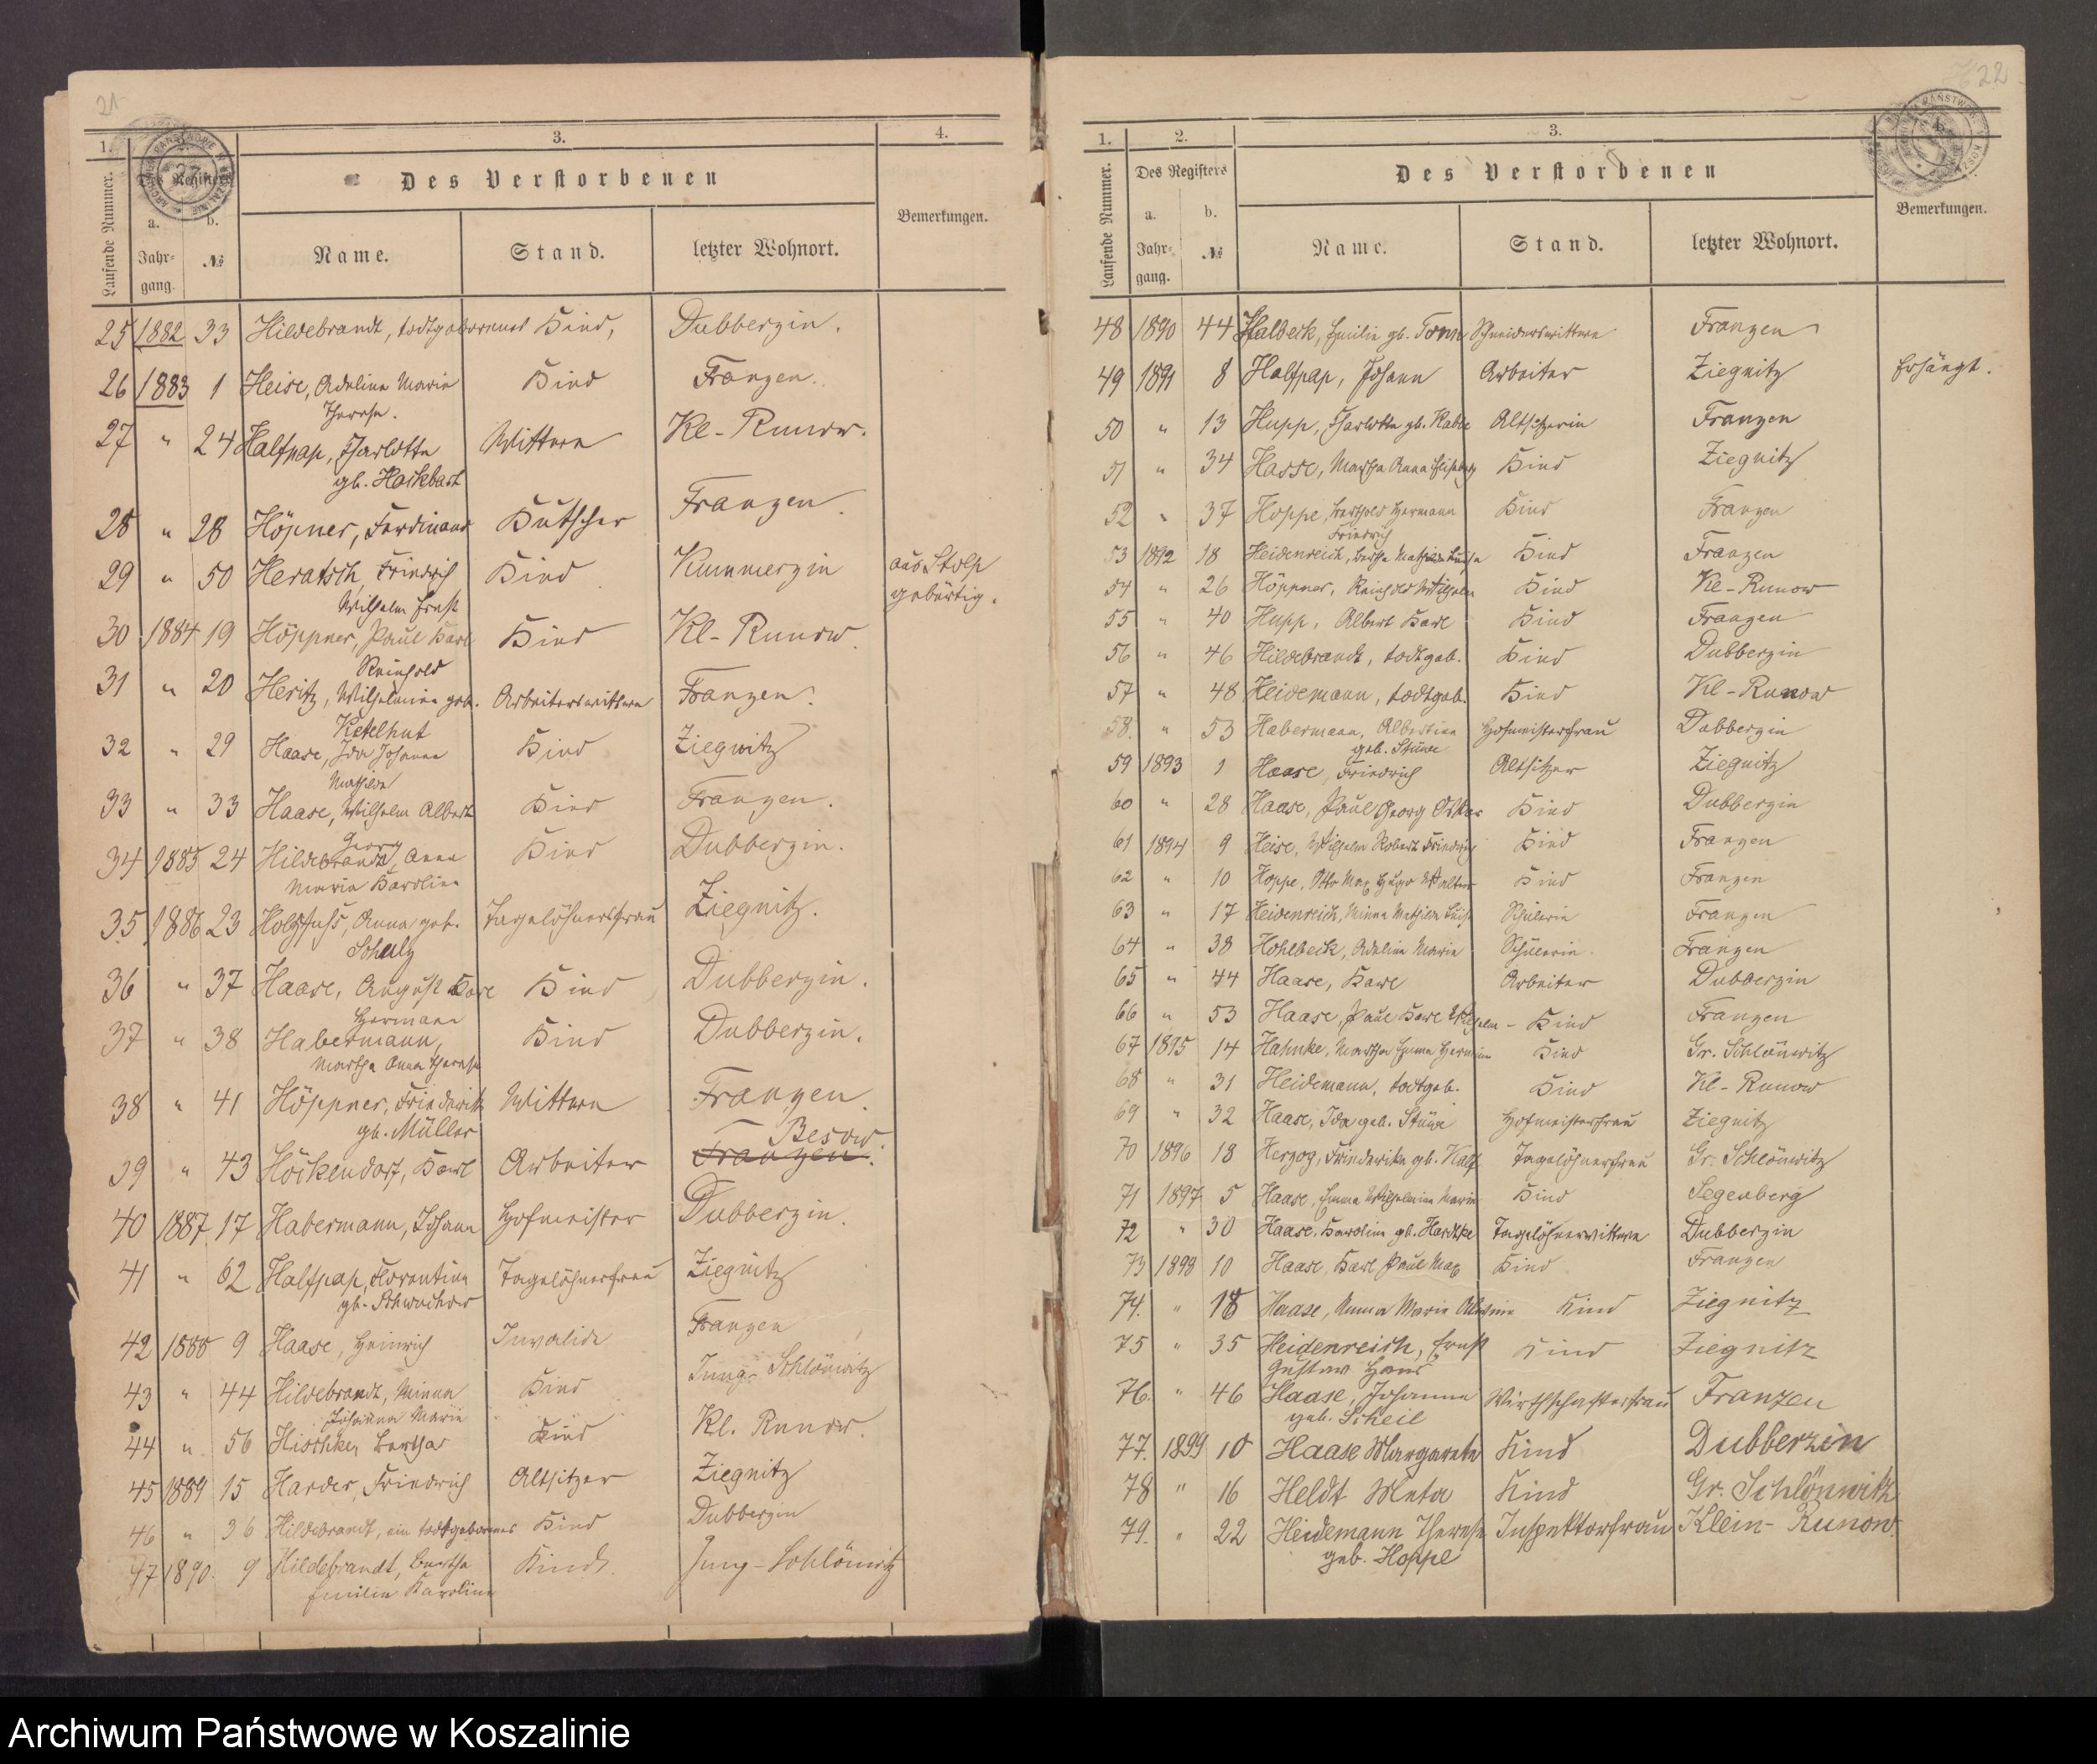 21
1.
3.
4.
Laufende Nummer.
Des Registers
Des Verstorbenen
Bemerkungen.
a.
b.
Jahr-
gang.
№
Name.
Stand.
letzter Wohnort.
25 1882 33 Hildebrandt, todtgeborenes Kind, Dubberzin.
26 1883 1 Heise, Adeline Marie Kind Franzen.
Therese.
27 " 24 Halfpap, Charlotte Wittwe Kl-Runow.
gb. Hackbart
28 " 28 Höpner, Ferdinand Kutscher Franzen.
29 " 50 Heratsch, Friedrich Kind Kummerzin aus Stolp
Wilhelm Ernst gebürtig.
30 1884 19 Höppner, Paul Karl Kind Kl-Runow.
Reinhold
31 " 20 Heritz, Wilhelmine geb. Arbeiterwittwe Franzen.
Ketelhut
32 " 29 Haase, Ida Johanna Kind Ziegnitz
Mathilde
33 " 33 Haase, Wilhelm Albert Kind Franzen.
Georg
34 1885 24 Hildebrandt, Anna Kind Dubberzin.
Marie Karoline
35 1886 23 Holzfuß, Anna geb. Tagelöhnersfrau Ziegnitz.
Schulz
36 " 37 Haase, August Karl Kind Dubberzin.
Hermann
37 " 38 Habermann, Kind Dubberzin.
Martha Anna Therese
38 " 41 Höppner, Friederike Wittwe Franzen.
gb. Müller
Besow.
39 " 43 Höckendorf, Karl Arbeiter Franzen.
40 1887 17 Habermann, Johann Hofmeister Dubberzin.
41 " 62 Halfpap, Florentine Tagelöhnerfrau Ziegnitz
gb.
42 1888 9 Haase, Heinrich Invalide Franzen
43 " 44 Hildebrandt, Minna Kind Jung-Schlönwitz
Johanna Marie
44 " 56 Hischke, Bertha Kind Kl. Runow.
45 1889 15 Harder, Friedrich Altsitzer Ziegnitz
46 " 36 Hildebrandt, ein todtgebornes Kind Dubberzin
47 1890. 9 Hildebrandt, Bertha Kind Jung-Schlönwitz
Emilie Karoline
22
1.
2.
3.
Laufende Nummer.
Des Registers
Des Verstorbenen
Bemerkungen.
a.
b.
Jahr-
gang.
№
Name.
Stand.
letzter Wohnort.
48 1890 44 Halbeck, Emilie gb. Tonn Schneiderwittwe Franzen
49 1891 8 Halfpap, Johann Arbeiter Ziegnitz Erhängt.
50 " 13 Hupp, Charlotte gb. Altsitzerin Franzen
51 " 34 Hasse, Martha Anna Elisabeth Kind Ziegnitz
52 " 37 Hoppe, Berthold Hermann Kind Franzen
Friedrich
53 1892 18 Heidenreich, Bertha Mathilde Luise Kind Franzen
54 " 26 Höppner, Reinhold Wilhelm Kind Kl-Runow
55 " 40 Hupp, Albert Karl Kind Franzen
56 " 46 Hildebrandt, todtgeb. Kind Dubberzin
57 " 48 Heidemann, todtgeb. Kind Kl-Runow
58. " 53 Habermann, Albertine Hofmeisterfrau Dubberzin
geb. Stüwe
59 1893 1 Haase, Friedrich Altsitzer Ziegnitz
60 " 28 Haase, Paul Georg Oskar Kind Dubberzin
61 1894 9 Heise, Wilhelm Robert Friedrich Kind Franzen
62 " 10 Hoppe, Otto Max Hugo Walter Kind Franzen
63 " 17 Heidenreich, Minna Mathilde Luise Schülerin Franzen
64 " 38 Hohlbeck, Adeline Marie Schülerin. Franzen
65 " 44 Haase, Karl Arbeiter Dubberzin
66 " 53 Haase, Paul Karl Wilhelm - Kind Franzen
67 1895 14 Hahnke, Martha Emma Hermine Kind Gr. Schlönwitz
68 " 31 Heidemann, todtgeb. Kind Kl-Runow
69 " 32 Haase, Ida geb. Stüwe Hofmeisterfrau Ziegnitz
70 1896 18 Herzog, Friederike gb. Tagelöhnerfrau Gr. Schlönwitz
71 1897 5 Haase, Emma Wilhelmine Marie Kind Segenberg
72 " 30 Haase, Karoline gb. Hardtke Tagelöhnerwittwe Dubberzin
73 1898 10 Haase, Karl Paul Max Kind Franzen
74. " 18 Haase, Anna Marie Albertine Kind Ziegnitz
75 " 35 Heidenreich, Ernst Kind Ziegnitz
Gustav Hans
76. " 46 Haase, Johanna Wirthschafterfrau Franzen
geb. Scheil
77. 1899 10 Haase Margarete Kind Dubberzin
78 " 16 Heldt Meta Kind Gr. Schlönwitz
79. " 22 Heidemann Therese Inspektorfrau Klein-Runow.
geb. Hoppe
Archiwum Państwowe w Koszalinie